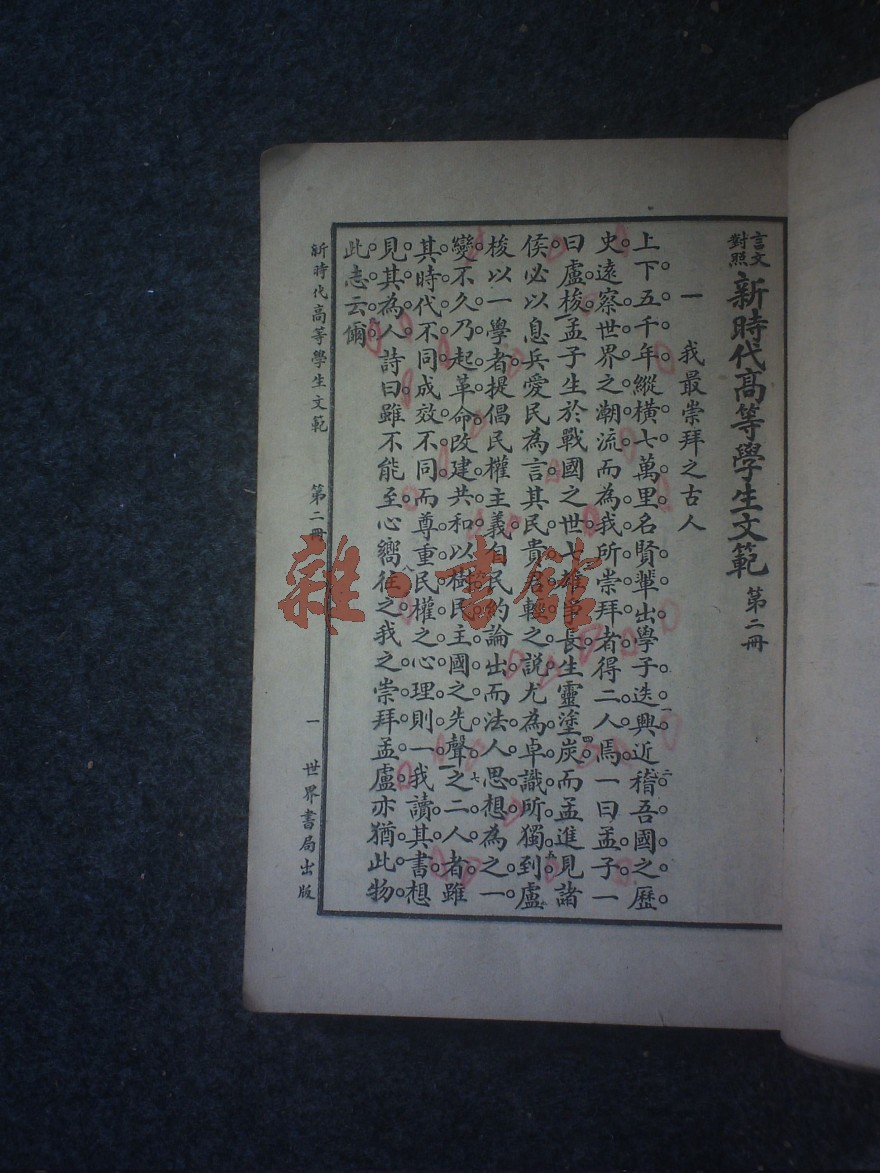 言文對照新時代高等學生文範 第二冊
一 我最崇拜之古人
上下五千年縱橫七萬里名賢輩出學子迭興近稽吾國之歷
史遠察世界之潮流而為我所崇拜者得二人焉一曰孟子一
曰盧梭孟子生於戰國之世七雄爭長生靈塗炭而孟進見諸
侯必以息兵愛民為言其民貴君輕之說尤為卓識所獨到盧
梭以一學者提倡民權主義自民約論出而法人思想為之一
變不久乃起革命改建共和以樹民主國之先聲之二人者雖
其時代不同成效不同而尊重民權之心理則一我讀其書想
見其為人詩曰雖不能至心嚮往之我之崇拜孟盧亦猶此物
此志云爾
新時代高等學生文範 第二冊 一 世界書局出版
雜·書館